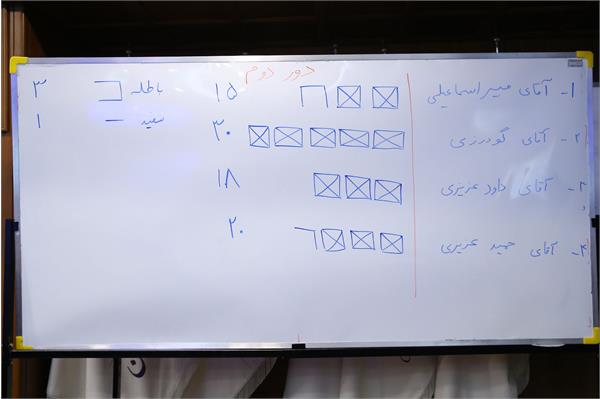 دور دوم
۱- آقای میراسماعیلی ۱۵
۲- آقای گودرزی ۳۰
۳- آقای داود عزیزی ۱۸
۴- آقای حمید عزیزی ۲۰
باطله ۳
سفید ۱